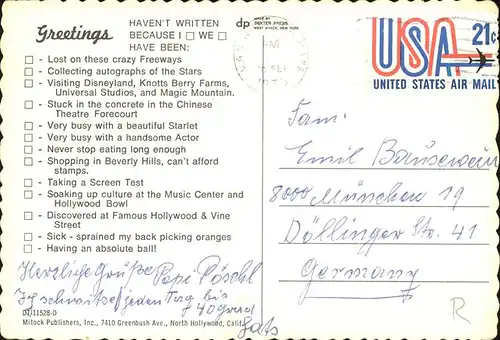 Greetings
HAVEN'T WRITTEN
BECAUSE I ☐ WE ☐
HAVE BEEN:
☐ - Lost on these crazy Freeways
☐ - Collecting autographs of the Stars
☐ - Visiting Disneyland, Knotts Berry Farms,
Universal Studios, and Magic Mountain.
☐ - Stuck in the concrete in the Chinese
Theatre Forecourt
☐ - Very busy with a beautiful Starlet
☐ - Very busy with a handsome Actor
☐ - Never stop eating long enough
☐ - Shopping in Beverly Hills, can't afford
stamps.
☐ - Taking a Screen Test
☐ - Soaking up culture at the Music Center and
Hollywood Bowl
☐ - Discovered at Famous Hollywood & Vine
Street
☐ - Sick - sprained my back picking oranges
☐ - Having an absolute ball!
Herzliche Grüße Papi Pöschl
Ich schwitze jeden Tag bis
+40 Grad
D1/11528-D
Mitock Publishers, Inc., 7410 Greenbush Ave., North Hollywood, Calif.
dp
MADE BY
DEXTER PRESS
WEST NYACK, NEW YORK
PM
SEP
USA 21c
UNITED STATES AIR MAIL
Fam.
Emil Bauserwein
8000 München 19
Döllinger Str. 41
Germany
R